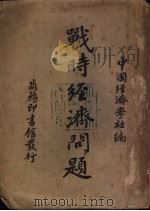 中國經濟學社編
戰時經濟問題
商務印書館發行